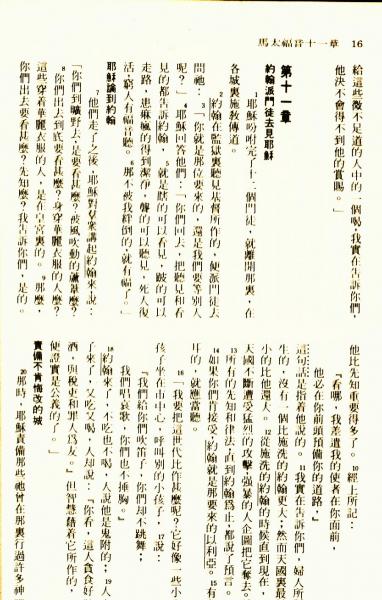 馬太福音十一章　16
給這些微不足道的人中的一個喝，我實在告訴你們，
他決不會得不到他的賞賜。」
第十一章
約翰派門徒去見耶穌
1耶穌吩咐完了十二個門徒，就離開那裏，在
各城裏施教傳道。
2約翰在監獄裏聽見基督所作的，便派門徒去
問祂：3「你就是那位要來的，還是我們要等別人
呢？」4耶穌回答他們：「你們回去，把聽見和看
見的都告訴約翰，5就是瞎的可以看見，跛的可以
走路，患痲瘋的得到潔淨，聾的可以聽見，死人復
活，窮人有福音聽。6那不被我絆倒的，就有福了。」
耶穌論到約翰
7他們走了之後，耶穌對羣衆講起約翰來，說：
「你們到曠野去，是要看甚麼？被風吹動的蘆葦麼？
8你們出去到底要看甚麼？身穿華麗衣服的人麼？
這些穿着華麗衣服的人，是在皇宮裏的。9那麼，
你們出去要看甚麼？先知麼？我告訴你們，是的。
他比先知重要得多了。10經上所記：
『看哪，我差遣我的使者在你面前，
他必在你前頭預備你的道路。』
這句話是指着他說的。11我實在告訴你們，婦人所
生的，沒有一個比施洗的約翰更大；然而天國裏最
小的比他還大。12從施洗的約翰的時候直到現在，
天國不斷遭受猛烈的攻擊，強暴的人企圖把它奪去。
13所有的先知和律法，直到約翰爲止，都說了預言。
14如果你們肯接受，約翰就是那要來的以利亞。15有
耳的，就應當聽。
16「我要把這世代比作甚麼呢？它好像一些小
孩子坐在市中心，呼叫別的小孩子，17說：
『我們給你們吹笛子，你們却不跳舞；
我們唱哀歌，你們也不捶胸。』
18約翰來了，不吃也不喝，人說他是鬼附的；19人
子來了，又吃又喝，人却說：『你看，這人貪食好
酒，與稅吏和罪人爲友。』但智慧藉着它所作的，
便證實是公義的了。」
責備不肯悔改的城
20那時，耶穌責備那些祂曾在那裏行過許多神